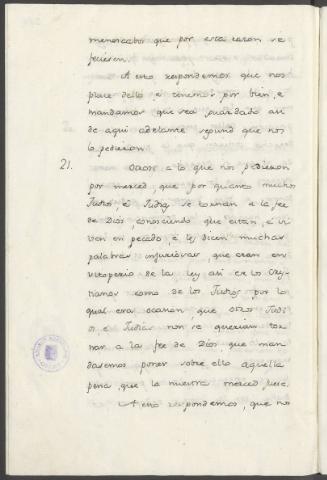 menoscabos que por esta razon se
fecieren.
A esto respondemos que nos
place dello, e tenemos por bien, e
mandamos que sea guardado asi
de aqui adelante segund que nos
lo pedieron
21. Otrosi a lo que nos pedieron
por merced, que por quanto muchos
Judios, é Judias se tornan a la fee
de Dios, conosciendo que estan, é vi
ven en pecado, é les dicen muchas
palabras injuriosas, que eran en
vituperio de la ley asi en los Cris
tianos como de los Judios por lo
qual era ocasion, que otros Judi
os, é Judias non se querian tor
nar a la fee de Dios, que man
dasemos poner sobre ello aquella
pena, que la nuestra merced fuese.
A esto respondemos, que no